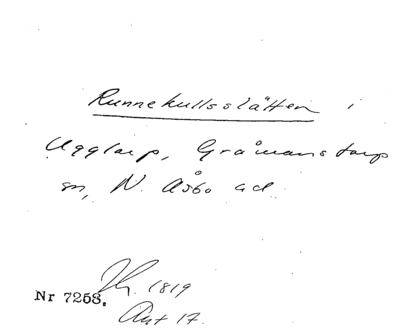 Runnekullsslätten i
Ugglarp, Gråmanstorps
sn, N. Åsbo hd
1819
Nr 7258.
Akt 17.